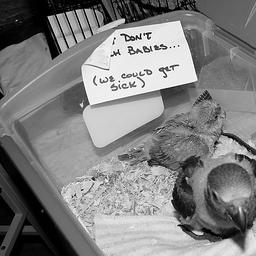 DON'T
BABIES...
(WE COULD GET
SICK)